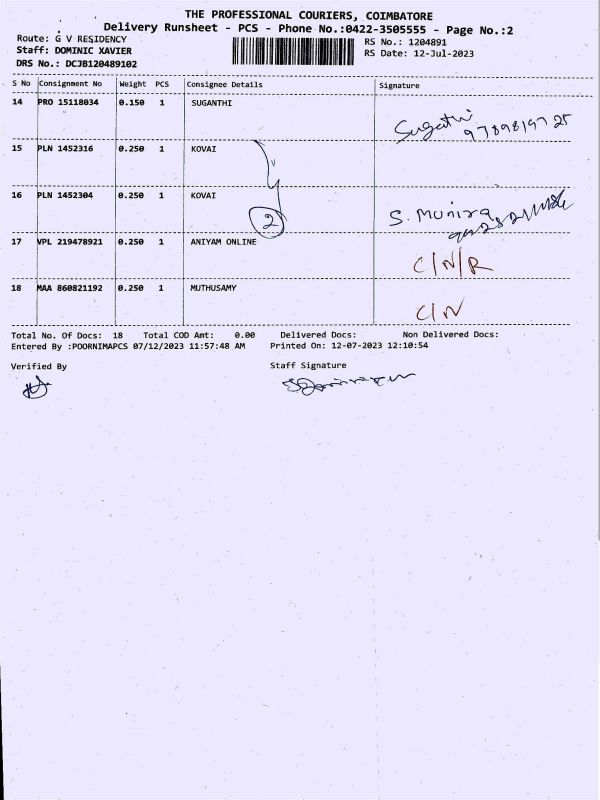 THE PROFESSIONAL COURIERS, COIMBATORE
Delivery Runsheet - PCS - Phone No.:0422-3505555 - Page No.:2
Route: G V RESIDENCY
Staff: DOMINIC XAVIER
DRS No.: DCJB120489102
RS No.: 1204891
RS Date: 12-Jul-2023
S No Consignment No Weight PCS Consignee Details Signature
14 PRO 15118034 0.150 1 SUGANTHI
Sugathi
9789819725
15 PLN 1452316 0.250 1 KOVAI
16 PLN 1452304 0.250 1 KOVAI
2 S. Munira
17 VPL 219478921 0.250 1 ANIYAM ONLINE
C/N/R
18 MAA 860821192 0.250 1 MUTHUSAMY
C/N
Total No. Of Docs: 18 Total COD Amt: 0.00 Delivered Docs: Non Delivered Docs:
Entered By :POORNIMAPCS 07/12/2023 11:57:48 AM Printed On: 12-07-2023 12:10:54
Verified By Staff Signature